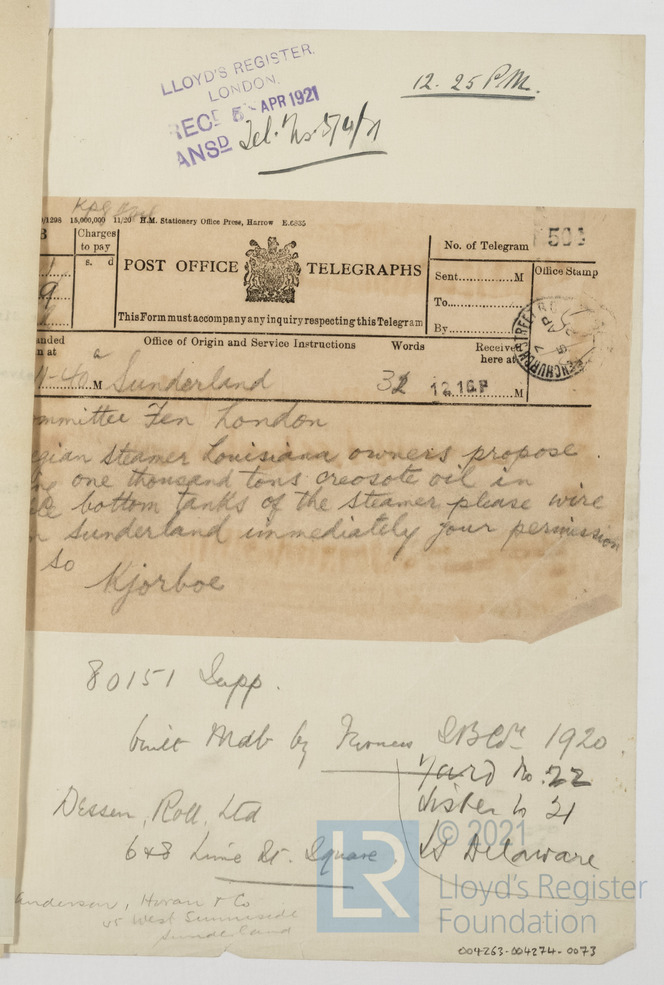 LLOYD'S REGISTER.
LONDON.
REC 5 APR 1921
ANSD Tel. No. 5/4/21
12.25 P.M.
/1298 15,000,000 11/20 H.M. Stationery Office Press, Harrow E.6835
Charges
to pay
s. d
POST OFFICE TELEGRAPHS
This Form must accompany any inquiry respecting this Telegram
No. of Telegram 501
Sent............M
To............
By............
Office Stamp
FENCHURCH STREET
anded
n at
Office of Origin and Service Instructions
Words
Received
here at
11-40 a M Sunderland 32 12.16P M
ommittee Fen London
gian steamer Louisiana owners propose
one thousand tons creosote oil in
le bottom tanks of the steamer please wire
n Sunderland immediately your permission
so
Kjorboe
80151 Supp.
built Mdb by Furness SBCo. 1920
Yard No. 22
Sister to 21
SS Delaware
Dessen, Roll, Ltd
6 & 8 Lime St. Square
Anderson, Horan & Co
45 West Sunniside
Sunderland
LR
© 2021
Lloyd's Register
Foundation
004263-004274-0073